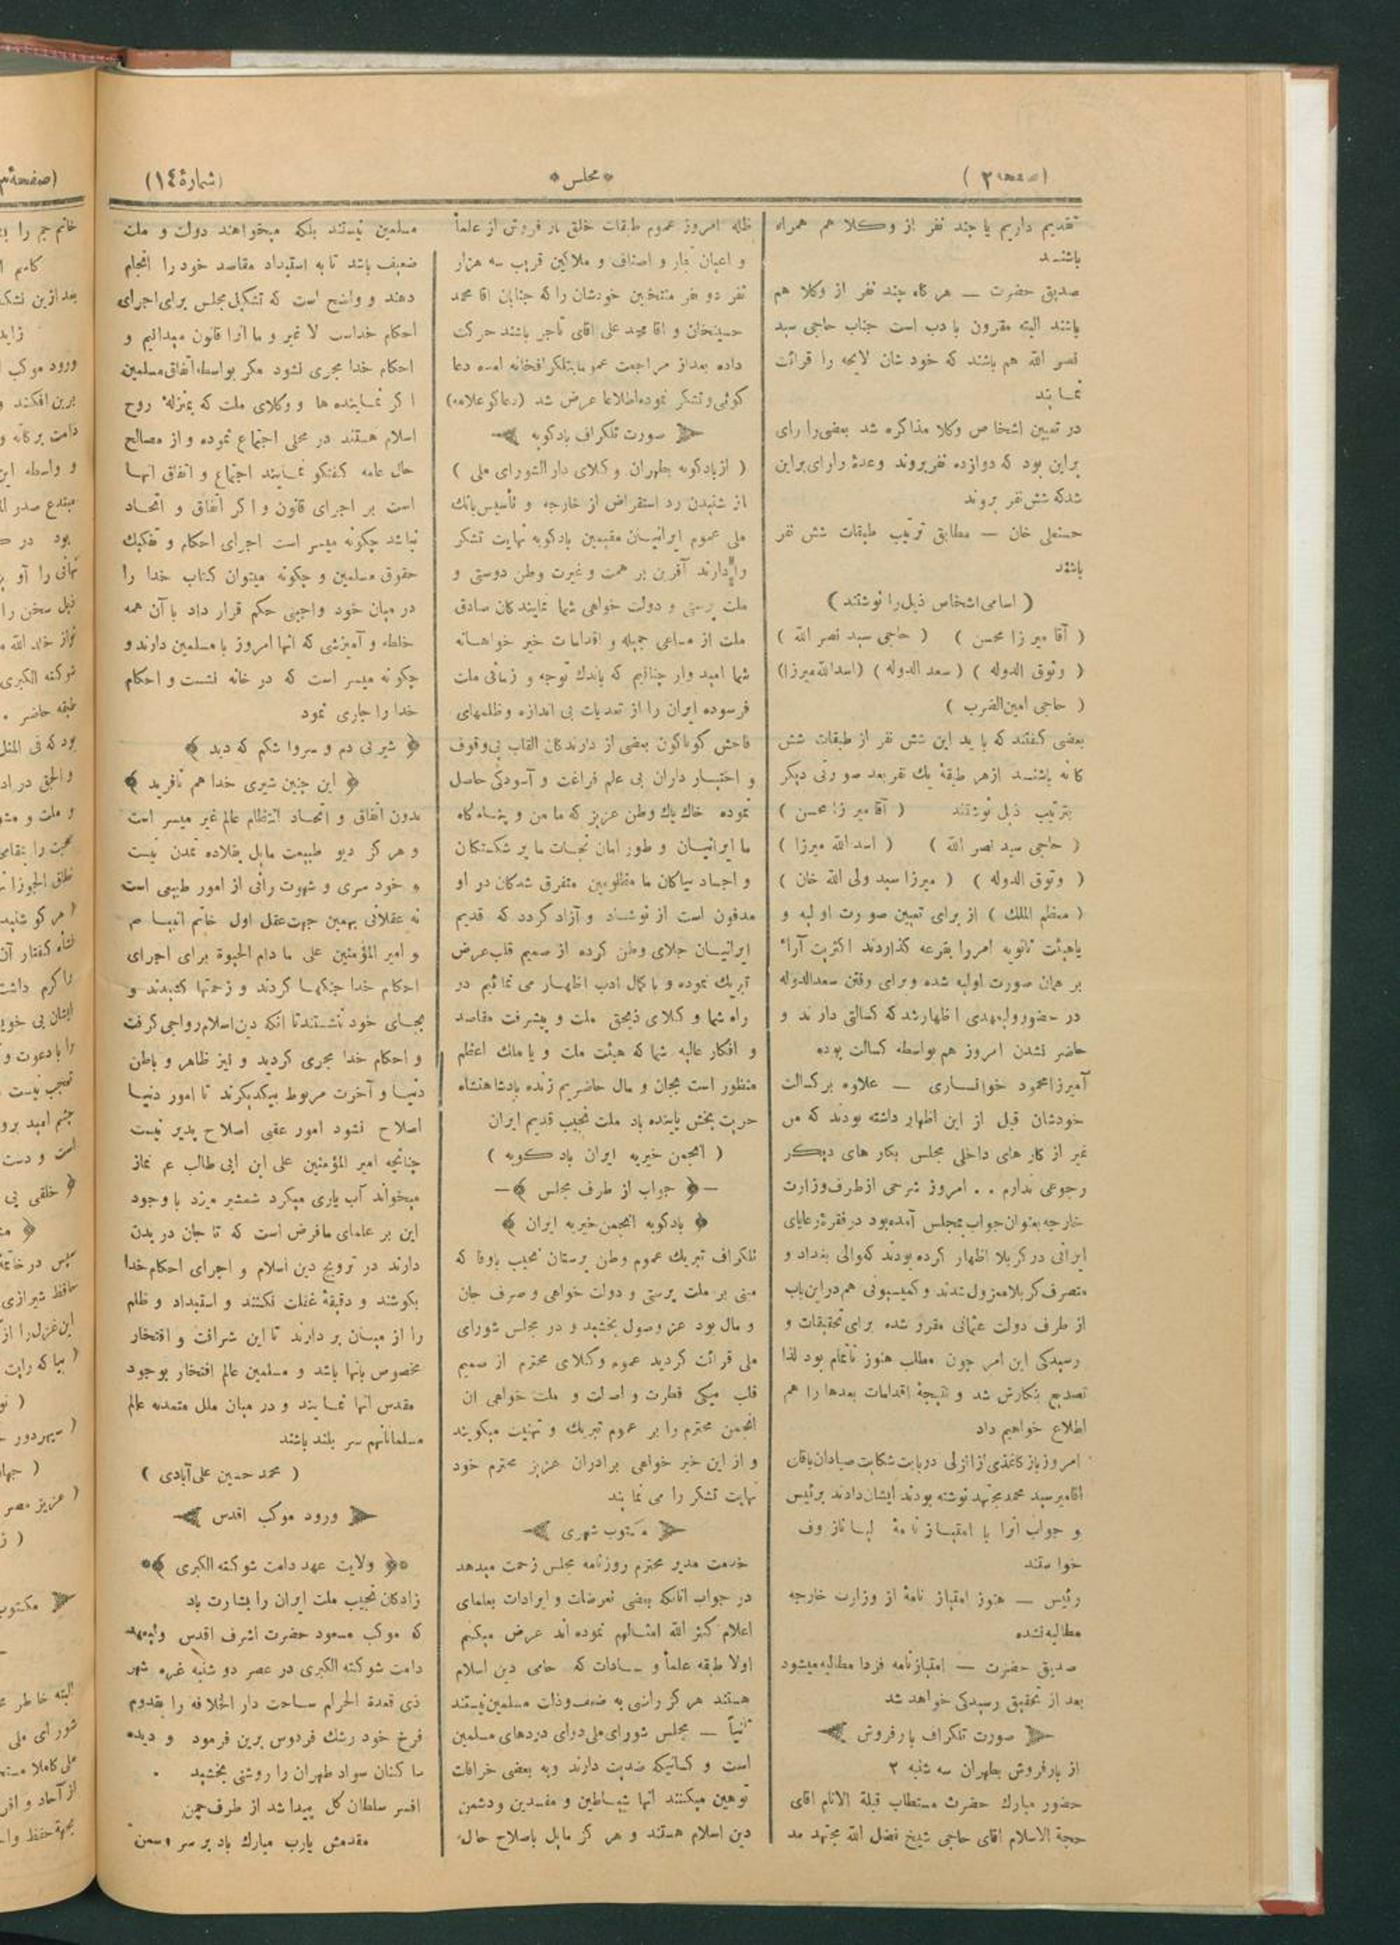 (صفحه ۲)
* مجلس *
(شمارهٔ ۱۴)
تقدیم داریم یا چند نفر از وکلا هم همراه
باشند
صدیق حضرت — هرگاه چند نفر از وکلا هم
باشند البته مقرون بادب است جناب حاجی سید
نصر الله هم باشند که خودشان لایحه را قرائت
نمایند
در تعیین اشخاص وکلا مذاکره شد بعضی را رای
براین بود که دوازده نفر بروند وعدهٔ رارای براین
شدکه شش نفر بروند
حسنعلی خان — مطابق ترتیب طبقات شش نفر
باشد
( اسامی اشخاص ذیل را نوشتند )
( آقا میرزا محسن ) ( حاجی سید نصر الله )
( وثوق الدوله ) ( سعد الدوله ) (اسدالله میرزا)
( حاجی امین الضرب )
بعضی گفتند که باید این شش نفر از طبقات شش
گانه باشند ازهر طبقهٔ یک نفر بعد صورتی دیگر
بترتیب ذیل نوشتند ( آقا میرزا محسن )
( حاجی سید نصر الله ) ( اسد الله میرزا )
( وثوق الدوله ) ( میرزا سید ولی الله خان )
( معظم الملک ) از برای تعیین صورت اولیه و
یاهیئت ثانویه امررا بقرعه گذاردند اکثریت آراء
بر همان صورت اولیه شده وبرای رفتن سعدالدوله
در حضور ولیعهدی اظهارشد که کسالتی دارند و
حاضر نشدن امروز هم بواسطه کسالت بوده
آمیرزامحمود خوانساری — علاوه بر کسالت
خودشان قبل از این اظهار داشته بودند که من
غیر از کار های داخلی مجلس بکار های دیگر
رجوعی ندارم . . امروز شرحی ازطرف وزارت
خارجه بعنوان جواب بمجلس آمده بود درفقرهٔ رعایای
ایرانی درکربلا اظهار کرده بودند که والی بغداد و
متصرف کربلا معزول شدند و کمیسیونی هم دراین باب
از طرف دولت عثمانی مقرر شده برای تحقیقات و
رسیدگی این امر چون مطلب هنوز ناتمام بود لذا
تصدیع بنگارش شد و نتیجهٔ اقدامات بعدها را هم
اطلاع خواهیم داد
امروز باز کاغذی از انزلی در بابت شکایت صیادان باقای
اقامیرسید محمد مجتهد نوشته بودند ایشان دادند برئیس
و جواب انرا با امتیاز نامهٔ لیانازوف
خواستند
رئیس — هنوز امتیاز نامهٔ از وزارت خارجه
مطالبه نشده
صدیق حضرت — امتیازنامه فردا مطالبه میشود
بعد از تحقیق رسیدگی خواهد شد
صورت تلگراف بارفروش
از بارفروش بطهران سه شنبه ۲
حضور مبارک حضرت مستطاب قبلة الانام اقای
حجة الاسلام اقای حاجی شیخ فضل الله مجتهد مد
ظله امروز عموم طبقات خلق بار فروش از علماً
و اعیان تجار و اصناف و ملاکین قریب سه هزار
نفر دو نفر منتخبین خودشان را که جنابان اقا محمد
حسینخان و اقا محمد علی اقای تاجر باشند حرکت
داده بعداز مراجعت عموما بتلگرافخانه امده دعا
گوئی وتشکر نموده اطلاعا عرض شد (دعاگو علامه)
صورت تلگراف بادکوبه
( از بادکوبه بطهران وکلای دار الشورای ملی )
از شنیدن رد استقراض از خارجه و تأسیس بانک
ملی عموم ایرانیان مقیمین بادکوبه نهایت تشکر
را دارند آفرین بر همت و غیرت وطن دوستی و
ملت پرستی و دولت خواهی شما نمایندگان صادق
ملت از مساعی جمیله و اقدامات خیر خواهانه
شما امید وار چنانیم که باندک توجه و زمانی ملت
فرسوده ایران را از تعدیات بی اندازه وظلمهای
فاحش گوناگون بعضی از دارندگان القاب بی وقوف
و اختیار داران بی علم فراغت و آسودگی حاصل
نموده خاک پاک وطن عزیز که مامن و پناه گاه
ما ایرانیان و طور امان نجات ما بر شکستگان
و اجساد نیاکان ما مظلومین متفرق شدگان در او
مدفون است از نوشاد و آزاد گردد که قدیم
ایرانیان جلای وطن کرده از صمیم قلب عرض
تبریک نموده و با کمال ادب اظهار می نمائیم در
راه شما و کلای ذیحق ملت و پیشرفت مقاصد
و افکار عالیه شما که هیئت ملت و یا ملک اعظم
منظور است بجان و مال حاضریم زنده پادشاهنشاه
حریت بخش پاینده باد ملت نجیب قدیم ایران
( انجمن خیریه ایران بادکوبه )
جواب از طرف مجلس
بادکوبه انجمن خیریه ایران
تلگراف تبریک عموم وطن پرستان نجیب باوفا که
مبنی بر ملت پرستی و دولت خواهی و صرف جان
و مال بود عز وصول بخشید و در مجلس شورای
ملی قرائت گردید عموم وکلای محترم از صمیم
قلب نیکی فطرت و اصالت و ملت خواهی ان
انجمن محترم را بر عموم تبریک و تهنیت میگویند
و از این خیر خواهی برادران عزیز محترم خود
نهایت تشکر را می نمایند
مکتوب شهری
خدمت مدیر محترم روزنامه مجلس زحمت میدهد
در جواب انانکه بعضی تعرضات و ایرادات بعلمای
اعلام کثر الله امثالهم نموده اند عرض میکنم
اولا طبقه علماً و سادات که حامی دین اسلام
هستند هرگز راضی به ضعف وذلت مسلمین نیستند
ثانیاً — مجلس شورای ملی دوای دردهای مسلمین
است و کسانیکه ضدیت دارند وبه بعضی خرافات
توهین میکنند انها شیاطین و مفسدین ودشمن
دین اسلام هستند و هرگز مایل باصلاح حال
مسلمین نیستند بلکه میخواهند دولت و ملت
ضعیف باشد تا به استبداد مقاصد خود را انجام
دهند و واضح است که تشکیل مجلس برای اجرای
احکام خداست لا غیر و ما انرا قانون میدانیم و
احکام خدا مجری نشود مگر بواسطه اتفاق مسلمین
اگر نماینده ها و وکلای ملت که بمنزلهٔ روح
اسلام هستند در محلی اجتماع نموده و از مصالح
حال عامه گفتگو نمایند اجتماع و اتفاق انها
است بر اجرای قانون و اگر اتفاق و اتحاد
نباشد چگونه میسر است اجرای احکام و تفکیک
حقوق مسلمین و چگونه میتوان کتاب خدا را
در میان خود واجبی حکم قرار داد با آن همه
خلطه و آمیزشی که انها امروز با مسلمین دارند و
چگونه میسر است که در خانه نشست و احکام
خدا را جاری نمود
شیر بی دم و سروا شکم که دید
این چنین شیری خدا هم نافرید
بدون اتفاق و اتحاد انتظام عالم غیر میسر است
و هرگز دیو طبیعت مایل بقلاده تمدن نیست
و خود سری و شهوت رانی از امور طبیعی است
نه عقلانی بهمین جهت عقل اول خاتم انبیا ص
و امیر المؤمنین علی ما دام الحیوة برای اجرای
احکام خدا جنگها کردند و زحمتها کشیدند و
بجای خود ننشستند تا انکه دین اسلام رواجی گرفت
و احکام خدا مجری گردید و نیز ظاهر و باطن
دنیا و آخرت مربوط بیکدیگرند تا امور دنیا
اصلاح نشود امور عقبی اصلاح پذیر نیست
چنانچه امیر المؤمنین علی ابن ابی طالب ع نماز
میخواند آب یاری میکرد شمشیر میزد با وجود
این بر علمای مافرض است که تا جان در بدن
دارند در ترویج دین اسلام و اجرای احکام خدا
بکوشند و دقیقهٔ غفلت نکنند و استبداد و ظلم
را از میان بر دارند تا این شرافت و افتخار
مخصوص بانها باشد و مسلمین عالم افتخار بوجود
مقدس انها نمایند و در میان ملل متمدنه عالم
مسلمانانهم سر بلند باشند
( محمد حسین علی آبادی )
ورود موکب اقدس
ولایت عهد دامت شوکته الکبری
زادگان نجیب ملت ایران را بشارت باد
که موکب مسعود حضرت اشرف اقدس ولیعهد
دامت شوکته الکبری در عصر دو شنبه غره شهر
ذی قعدة الحرام ساحت دار الخلافه را بقدوم
فرخ خود رشک فردوس برین فرمود و دیده
ساکنان سواد طهران را روشنی بخشید .
افسر سلطان گل پیدا شد از طرف چمن
مقدمش یارب مبارک باد بر سر و سمن